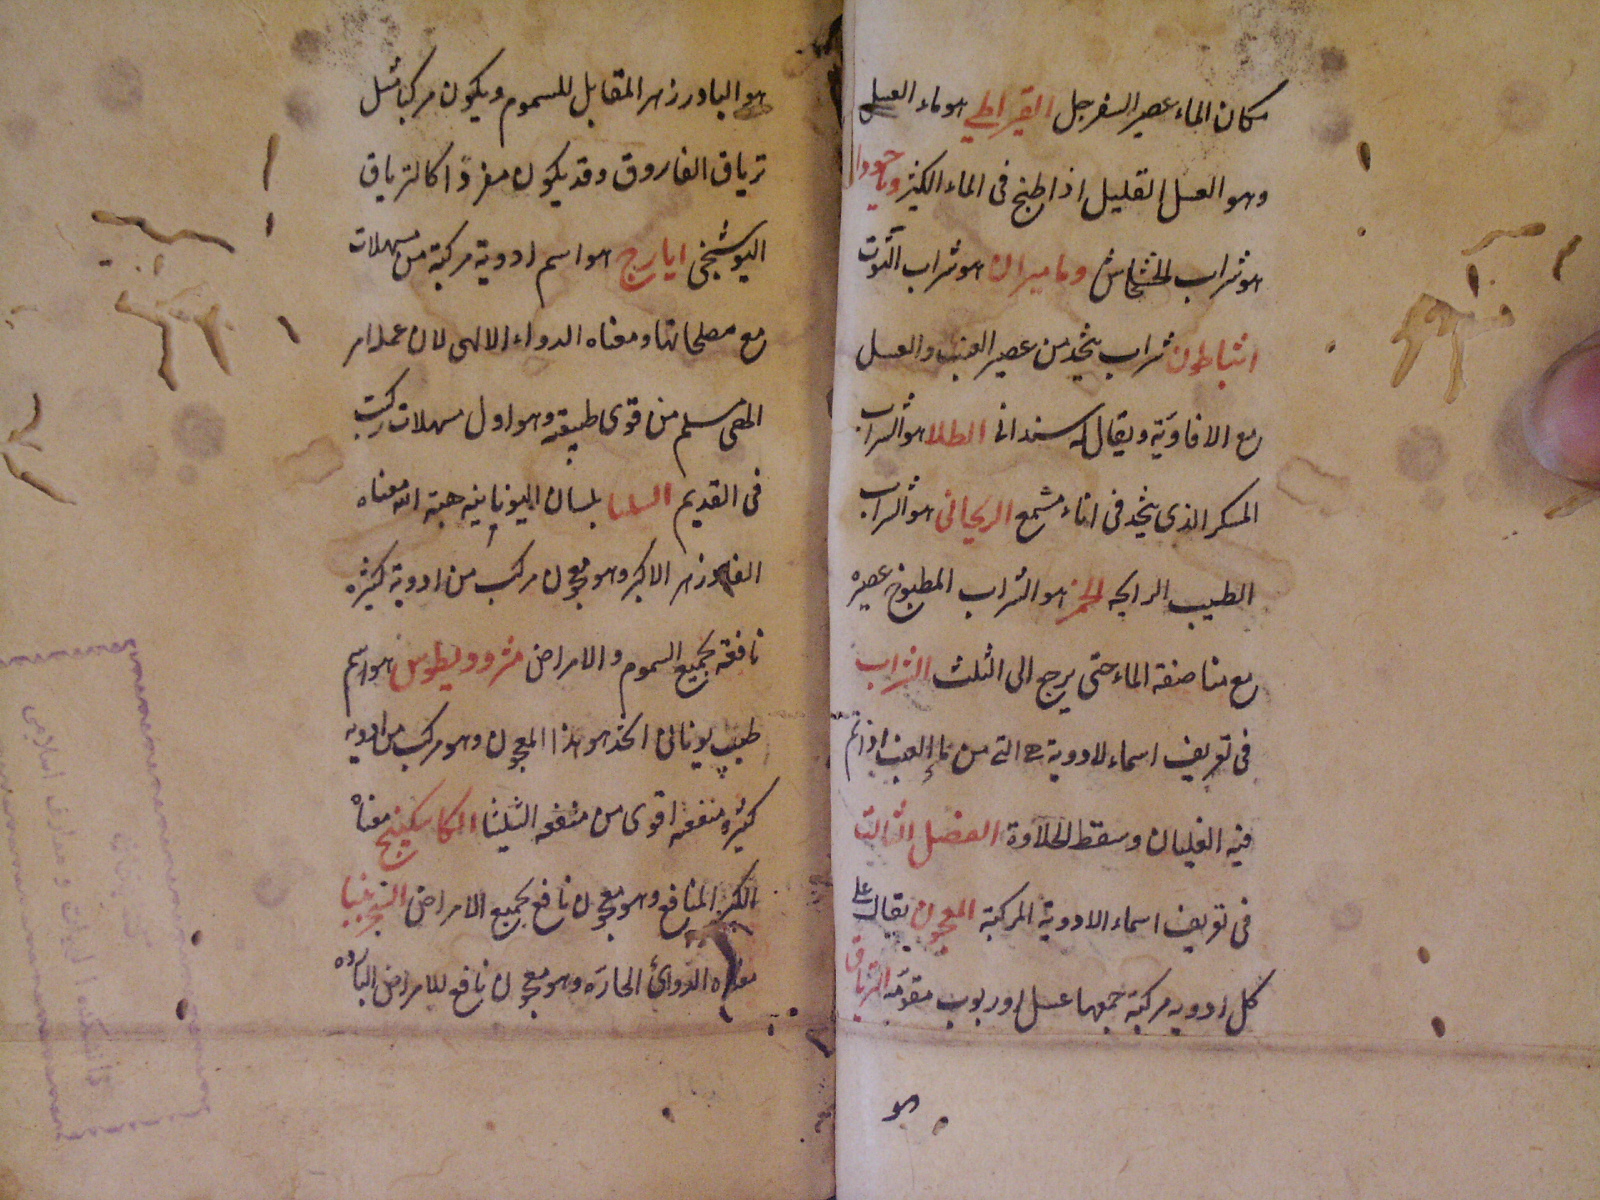 مكان الماء عصير السفرجل القيراطي هو ماء العسل
وهو العسل القليل اذا طبخ فى الماء الكثير
هو شراب الخشخاش وماميران هو شراب التوت
شراب يتخذ من عصير العنب والعسل
مع الافاوية ويقال له سندانى الطلا هو الشراب
المسكر الذى يتخذ فى اناء مشمع الريحانى هو الشراب
الطيب الرايحه الخمر هو الشراب المطبوخ عصيره
مع مناصفة الماء حتى يرجع الى الثلث الشراب
فى تعريف اسماء الادوية التى من ماء العنب اذا تم
فيه الغليان وسقط الحلاوة الفصل الثالث
فى تعريف اسماء الادوية المركبة المعجون يقال على
كل ادويه مركبة جمعها عسل او ربوب مقومة الترياق
هو
هو البادرزهر المقابل للسموم ويكون مركبا مثل
ترياق الفاروق وقد يكون مفردا كالترياق
البوشنجى ايارج هو اسم ادوية مركبة من مسهلات
مع مصلحاتها ومعناه الدواء الالهى لان عمله امر
الهى مسلم من قوى طبيعته وهو اول مسهلات ركبت
فى القديم بلسان اليونانية هبة الله معناه
الفادزهر الاكبر وهو معجون مركب من ادوية كثيره
نافعة لجميع السموم والامراض مثروديطوس هو اسم
طبيب يونانى اتخذ هو هذا المعجون وهو مركب من ادويه
كثيره منفعته اقوى من منفعه الثيلثا الكاسكبينج معناه
الكثير المنافع وهو معجون نافع لجميع الامراض
معناه الدوائ الحارة وهو معجون نافع للامراض البارده